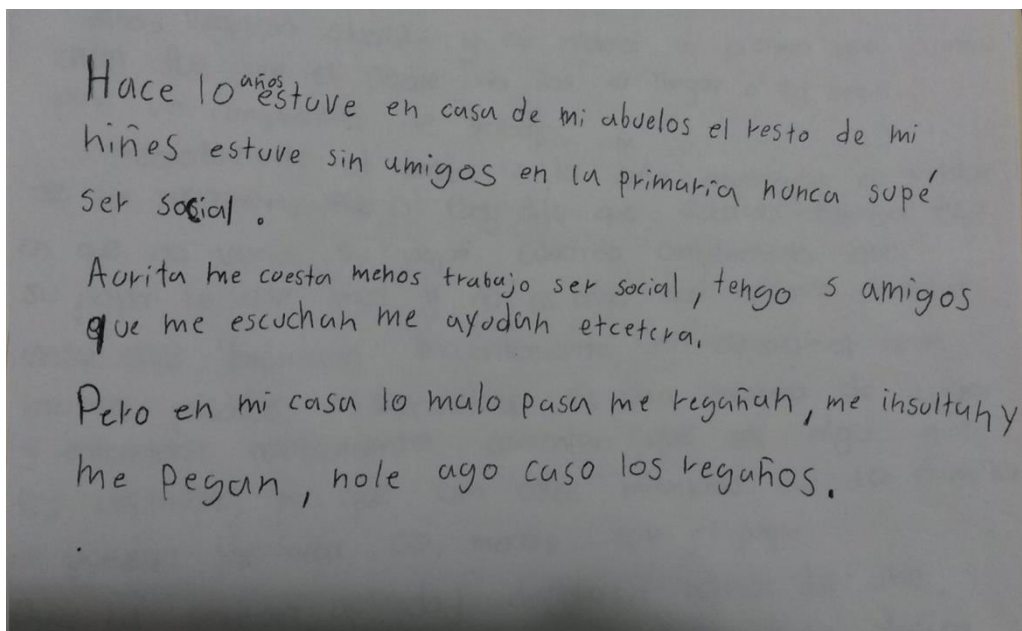 Hace 10 años estuve en casa de mi abuelos el resto de mi
niñes estuve sin amigos en la primaria nunca supé
ser social.
Aurita me cuesta menos trabajo ser social, tengo 5 amigos
que me escuchan me ayudan etcetera.
Pero en mi casa lo malo pasa me regañan, me insultan y
me pegan, nole ago caso los regaños.